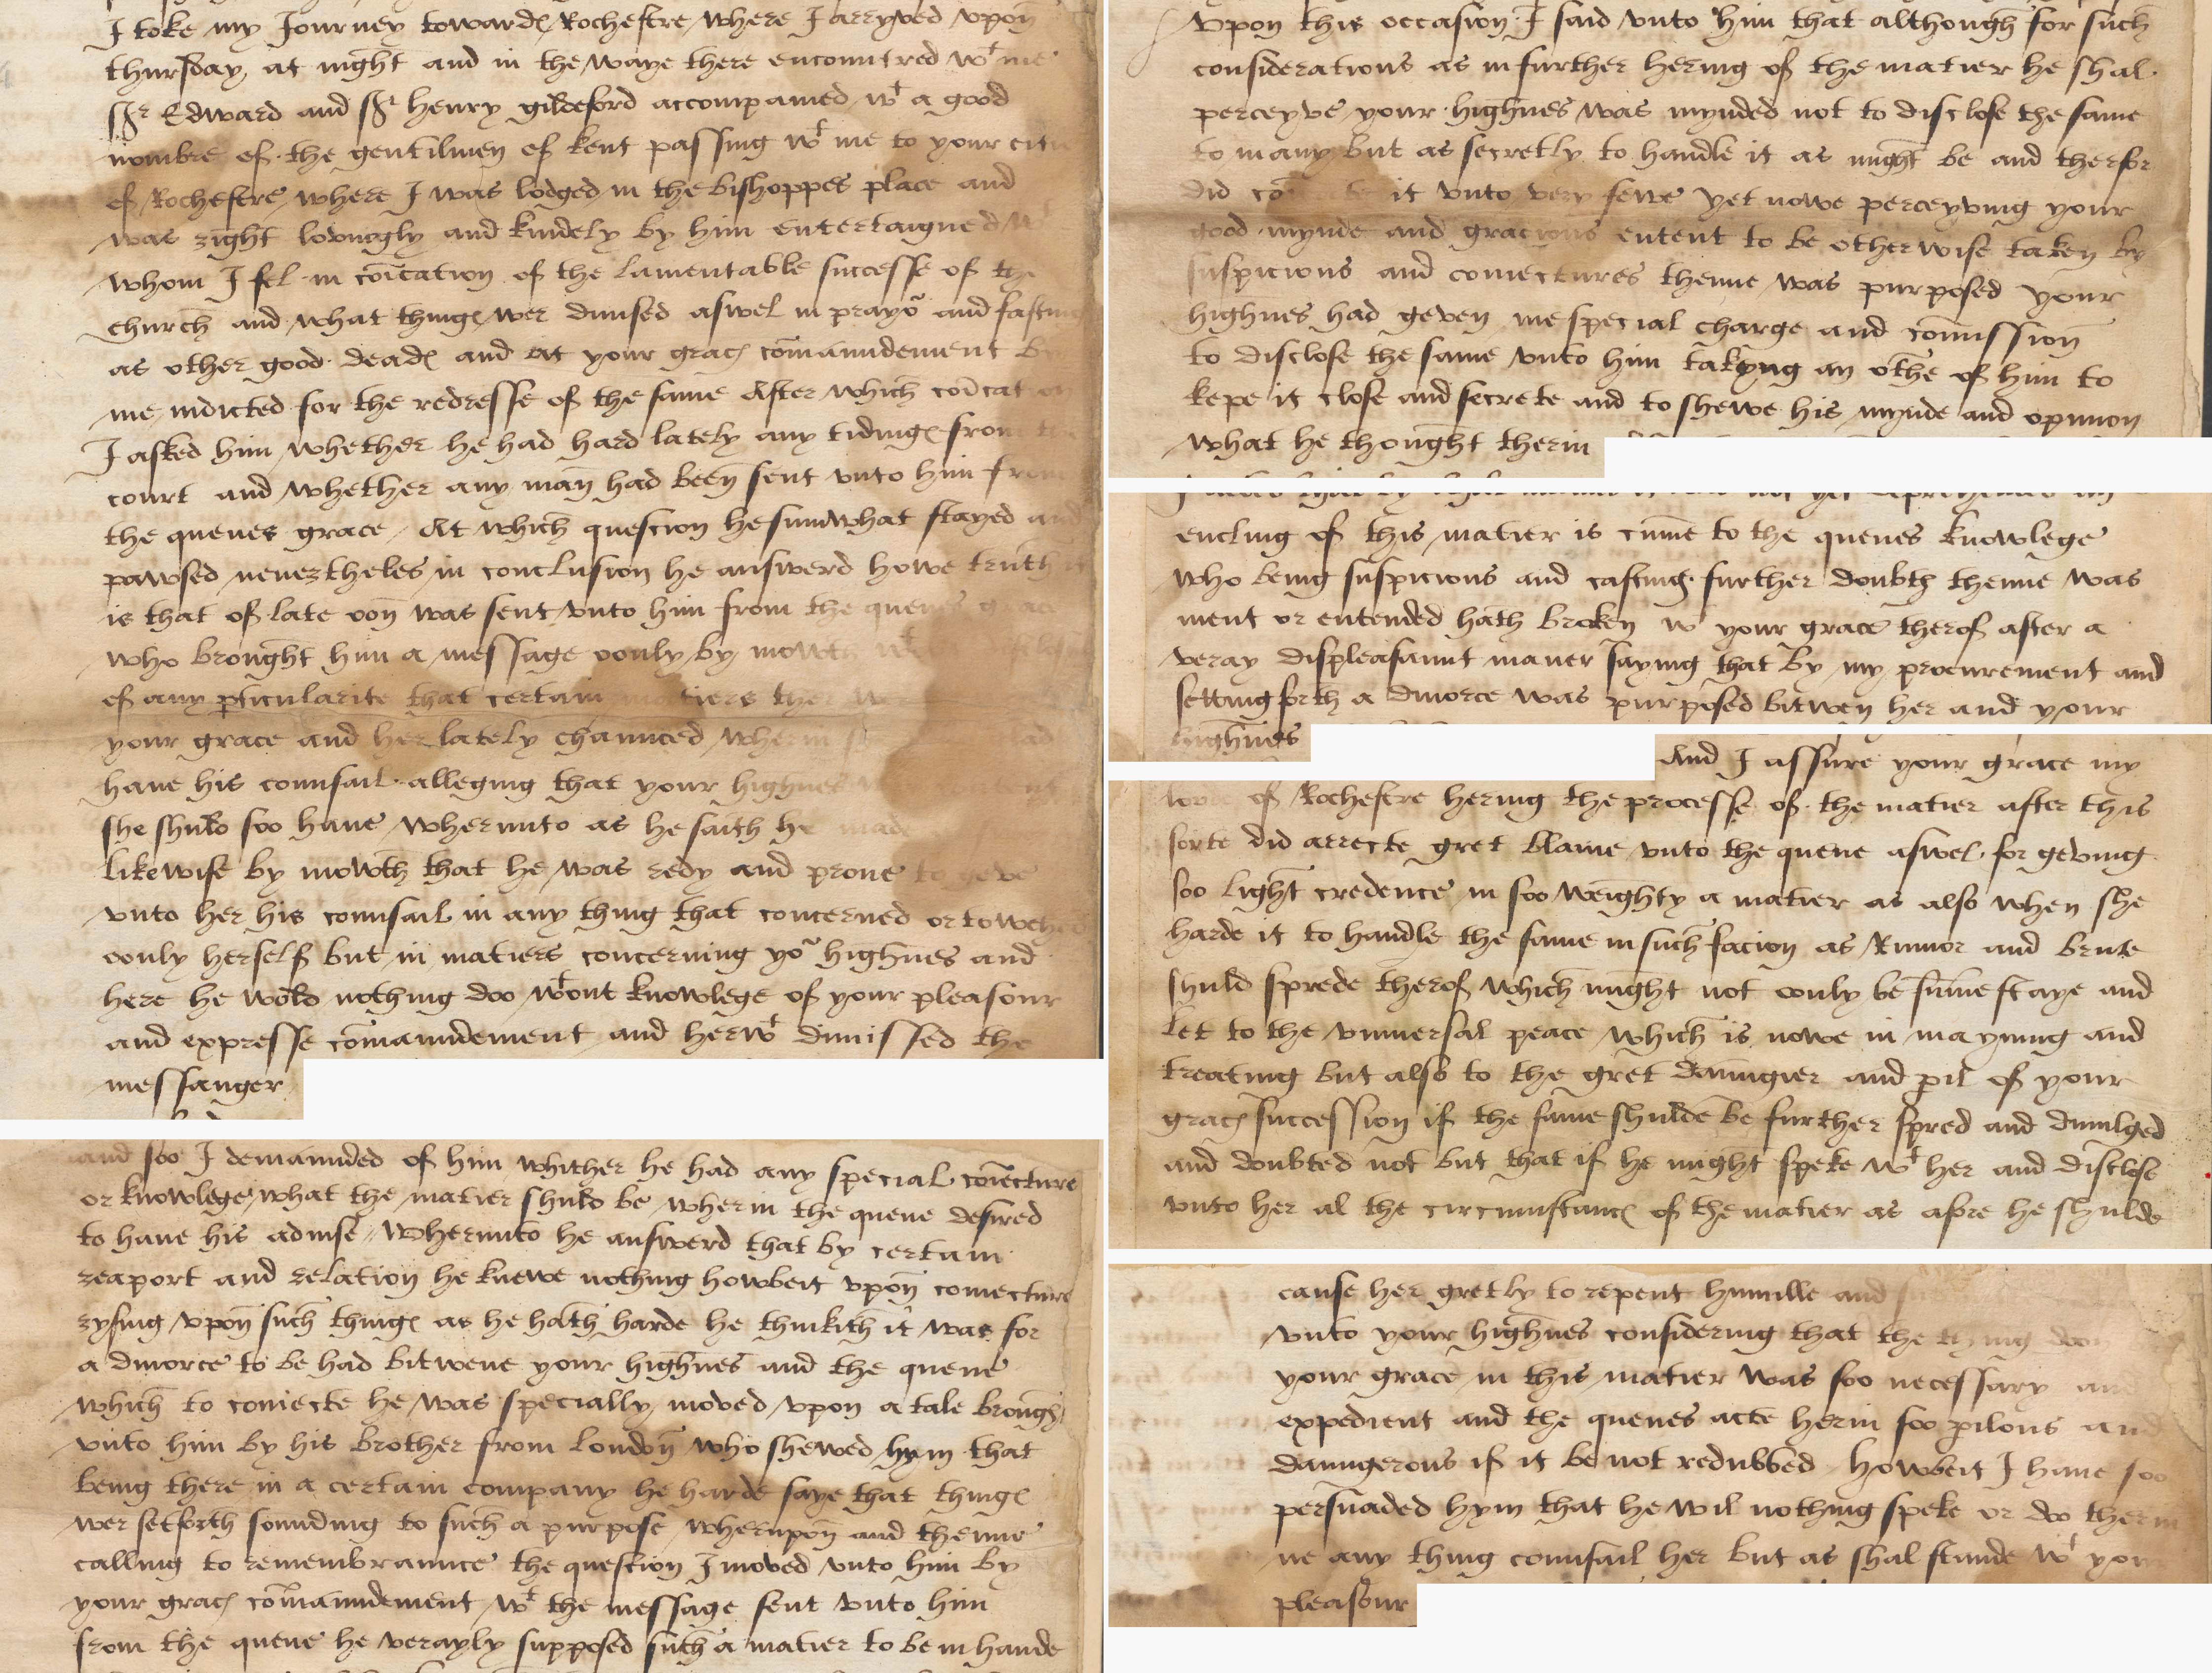 I toke my Journey towardes Rochestre where I arryved upon
thursday at night and in the waye there encountred wt me
Sr Edward and Sr henry gildeford accompanied wt a good
nombre of the gentilmen of kent passing wt me to your citie
of Rochestre where I was lodged in the bishoppes place and
was right lovingly and kindely by him entertaigned wt
whom I fel in cōīcation of the lamentable successe of the
church and what thinges wer divised aswel in prayor and fasting
as other good deades and at your graces cōmaundement by
me indicted for the redresse of the same After which cōīcation
I asked him whether he had hard lately any tidinges from the
court and whether any man had been sent unto him from
the quenes grace At which question he sumwhat stayed and
pawsed neuertheles in conclusion he answerd howe truth it
is that of late oon was sent unto him from the quenes grace
who brought him a message oonly by mowth wt
of any pticularite that certain matiers ther w
your grace and her lately chaunced wherin
have his counsail alleging that your highnes
she shuld soo have wherunto as he saith he made
likewise by mowth that he was redy and prone to geve
unto her his counsail in any thing that concerned or towched
oonly herself but in matiers concerning yor highnes and
here he wold nothing doo wtout knowlege of your pleasour
and expresse cōmaundement and herwt dimissed the
messanger
and soo I demaunded of him whither he had any special cōīecture
or knowlege what the matier shuld be wherin the quene desired
to have his advise wherunto he answerd that by certain
reaport and relation he knewe nothing howbeit upon coniecture
rysing upon such thinges as he hath harde he thinkith it was for
a divorce to be had bitwene your highnes and the quene
which to coniecte he was specially moved upon a tale brought
unto him by his brother from london who shewed hym that
being there in a certain company he harde saye that thinges
wer setforth sounding to such a purpose wherupon and thenne
calling to remembraunce the question I moved unto him by
your graces cōmaundement wt the message sent unto him
from the quene he verayly supposed such a matier to be in hande
Upon this occasion I said unto him that although for such
considerations as in further hering of the matier he shal
perceyve your highnes was mynded not to disclose the same
to many but as secretly to handle it as might be and therfor
did it unto very fewe yet nowe perceyving your
good mynde and gracious entent to be otherwise taken by
suspicions and coniectures thenne was purposed your
highnes had geven me special charge and cōmission
to disclose the same unto him taking an othe of him to
kepe it close and secrete and to shewe his mynde and opinion
what he thought therin
encling of this matier is cūme to the quenes knowlege
who being suspicious and casting further doubts thenne was
ment or entended hath broken wt your grace therof after a
veray displeasaunt maner saying that by my procurement and
setting forth a divorce was purposed bitwen her and your
highnes
And I assure your grace my
lord of Rochestre hering the processe of the matier after this
sorte did arrecte gret blame unto the quene aswel for geving
soo light credence in soo weighty a matier as also when she
harde it to handle the same in such facion as Rumor and brute
shuld sprede therof which might not oonly be sūme staye and
let to the universal peace which is nowe in mayning and
treating but also to the gret daungier and pil of your
graces succession if the same shulde be further spred and divulged
and doubted not but that if he might speke wt her and disclose
unto her al the circumstances of the matier as afore he shulde
cause her gretly to repent humille and
unto your highnes considering that the thing doon
your grace in this matier was soo necessary and
expedient and the quenes acte herin soo pilous and
daungerous if it be not redubbed howbeit I have soo
persuaded hym that he wil nothing speke or doo therin
ne any thing counsail her but as shal stande wt your
pleasour